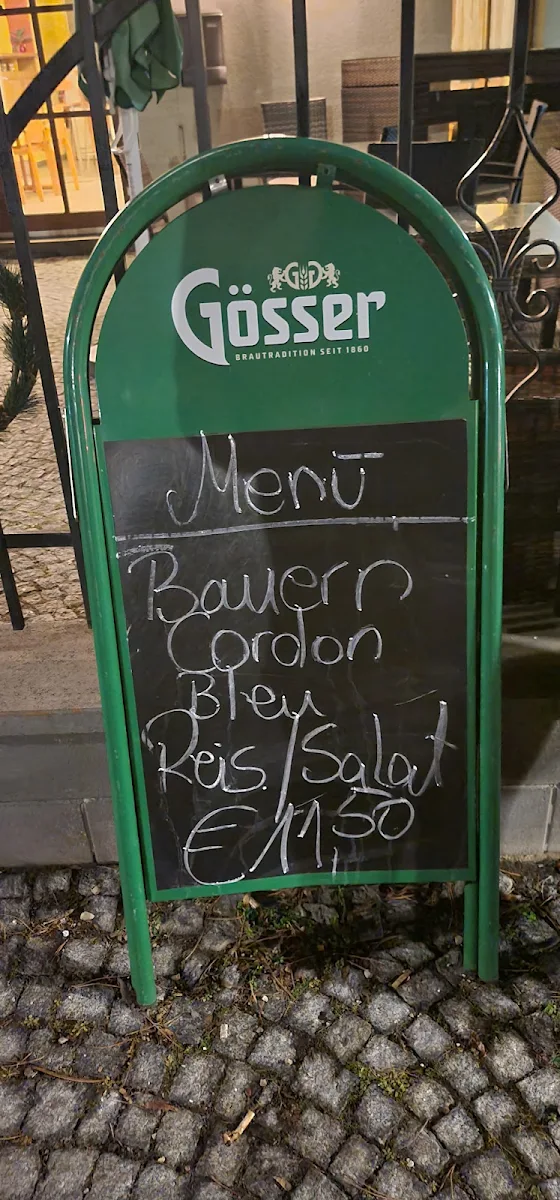 GG
Gösser
BRAUTRADITION SEIT 1860
Menü
Bauern
Cordon
Bleu
Reis/Salat
€ 11,50